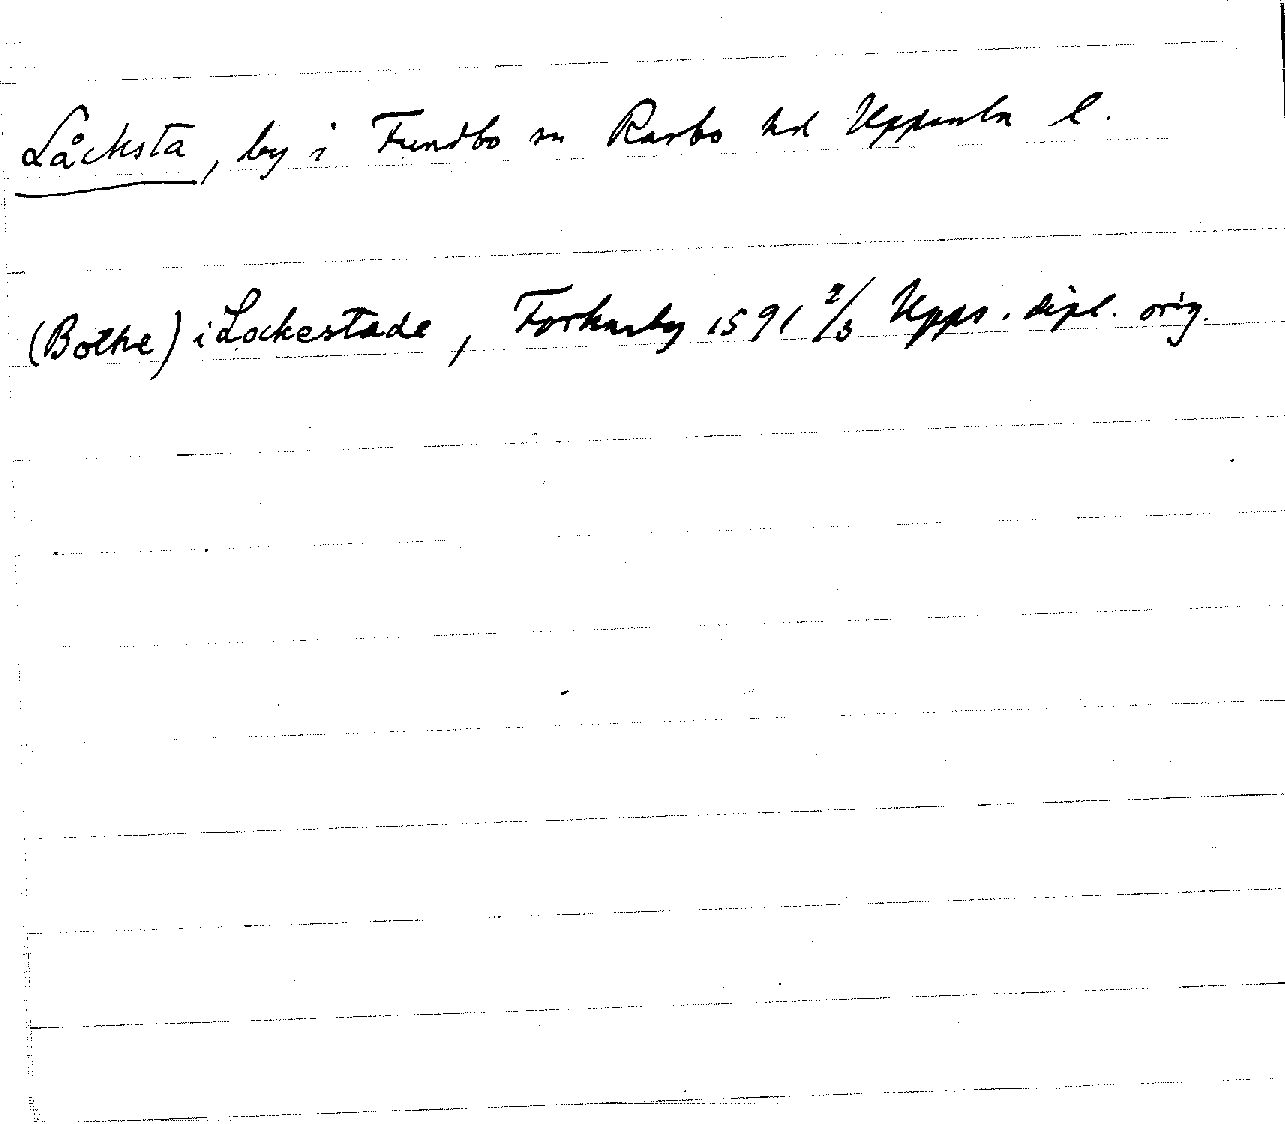 Låcksta, by i Funbo sn Rasbo hd Uppsala l.
(Bothe) i Lockestade, Forkarby 1591 2/3 Upps. dipl. orig.